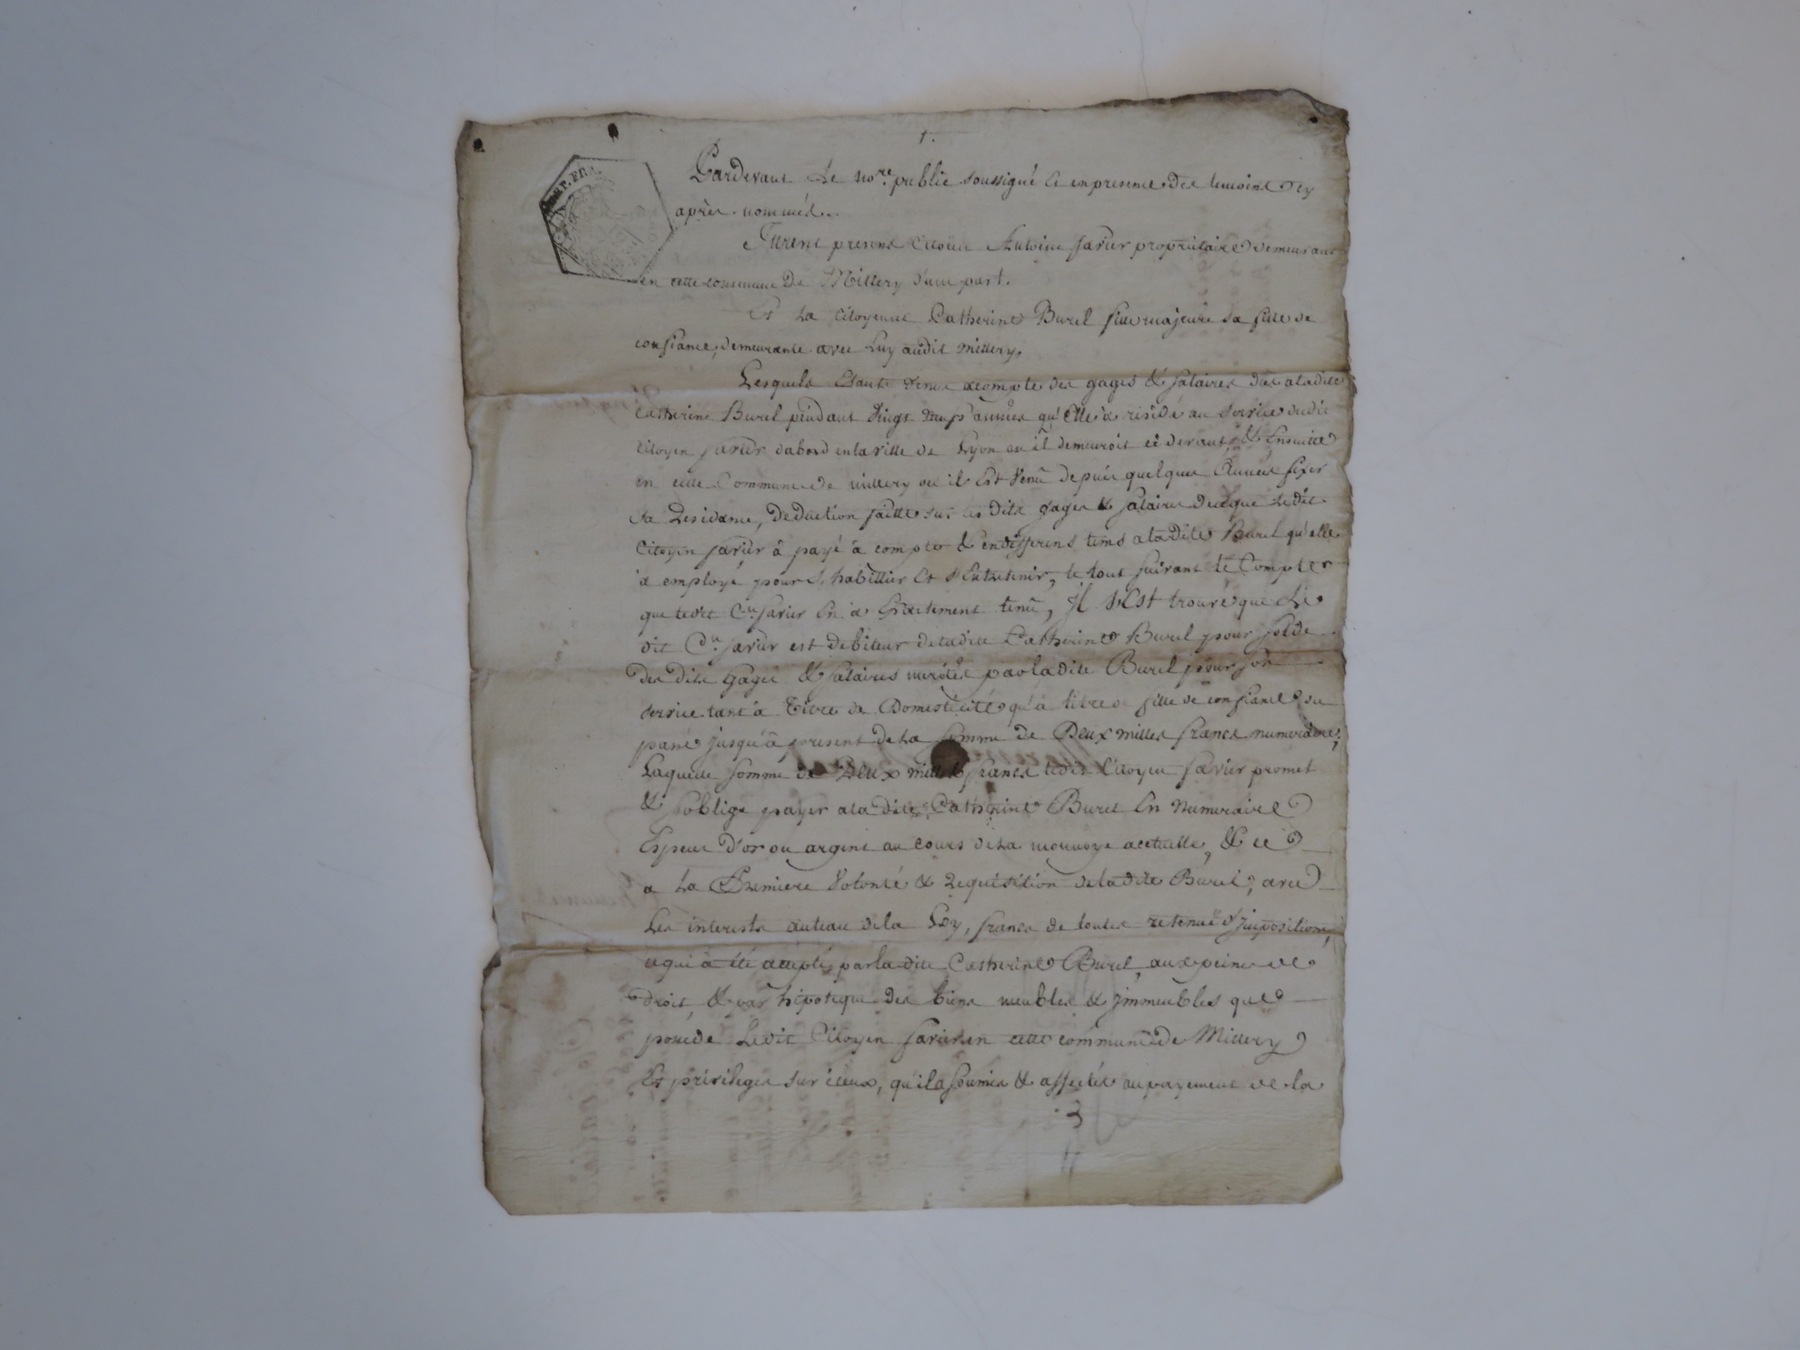 1.
REP. FRA.
Pardevant Le no.re public soussigné & en presence des temoins cy
après nommés.
Furent presens Citoien Antoine favier propriétaire demeurant
en cette commune De Millery d'une part.
Et La Citoyenne Catherine Burel fille majeure sa fille de
confiance, demeurante avec Luy audit Millery,
Lesquels Etants venus acompte des gages & salaires dus aladite
Catherine Burel pendant vingt neuf années qu'Elle à residé au Service dudit
Citoyen favier dabord enlaville de Lyon ou il demeuroit ci devant, & Ensuitte
en cette Commune de millery ou il Est venu depuis quelques Années fixer
sa Residance, Deduction faitte sur les dits gages & salaires de ceque ledit
Citoyen favier à payé à compte & endifferens tems aladite Burel qu'elle
à employé pour S'habillier Et s'Entretenir, le tout suivant Le Compte
que ledit C.en favier En à Exactement tenu, Il s'Est trouvé que Le
dit C.en favier est debiteur deladite Catherine Burel pour solde
des dits Gages & salaires merités par ladite Burel pour son
service tant à Titre de Domesticité qu'à titre de fille de confiance du
passé jusqu'à present de La somme de Deux milles francs numeraire,
Laquelle somme de Deux milles francs ledit Citoyen favier promet
& soblige payer aladite Catherine Burel En Numeraire
Especes D'or ou argent au cours de La monnoye actuelle, & ce
a La Premiere Volonté & Requisition deladite Burel, avec
Les interests auteau de la Loy, francs de toutes retenue d'Imposition,
cequi à été accepté par ladite Catherine Burel, aux peines de
droit, & par hipoteque Des biens meubles & Immeubles que
possede Ledit Citoyen favier en cette commune de Millery
Et privileges sur iceux, qu'il a soumis & affectés au payement de la